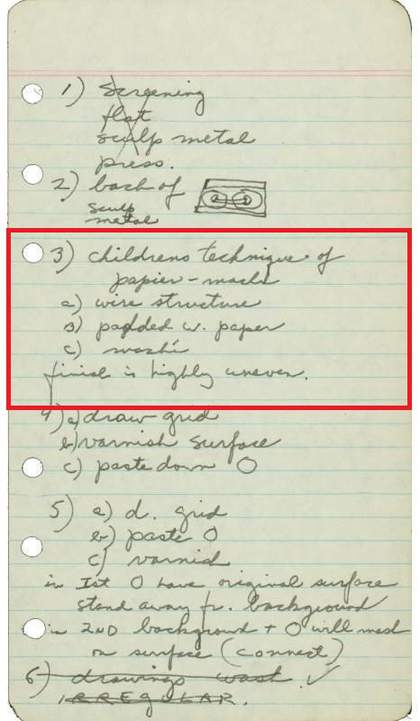 1) Screening
flat
sculp metal
press.
2) back of
sculp
metal
3) childrens technique of
papier-maché
a) wire structure
b) padded w. paper
c) maché
finish is highly uneven.
4) a) draw grid
b) varnish surface
c) paste down O
5) a) d. grid
b) paste O
c) varnish
in 1st O have original surface
stand away fr. background
in 2ND background + O will mesh
on surface (connect)
6) drawings wash ✓
IRREGULAR.